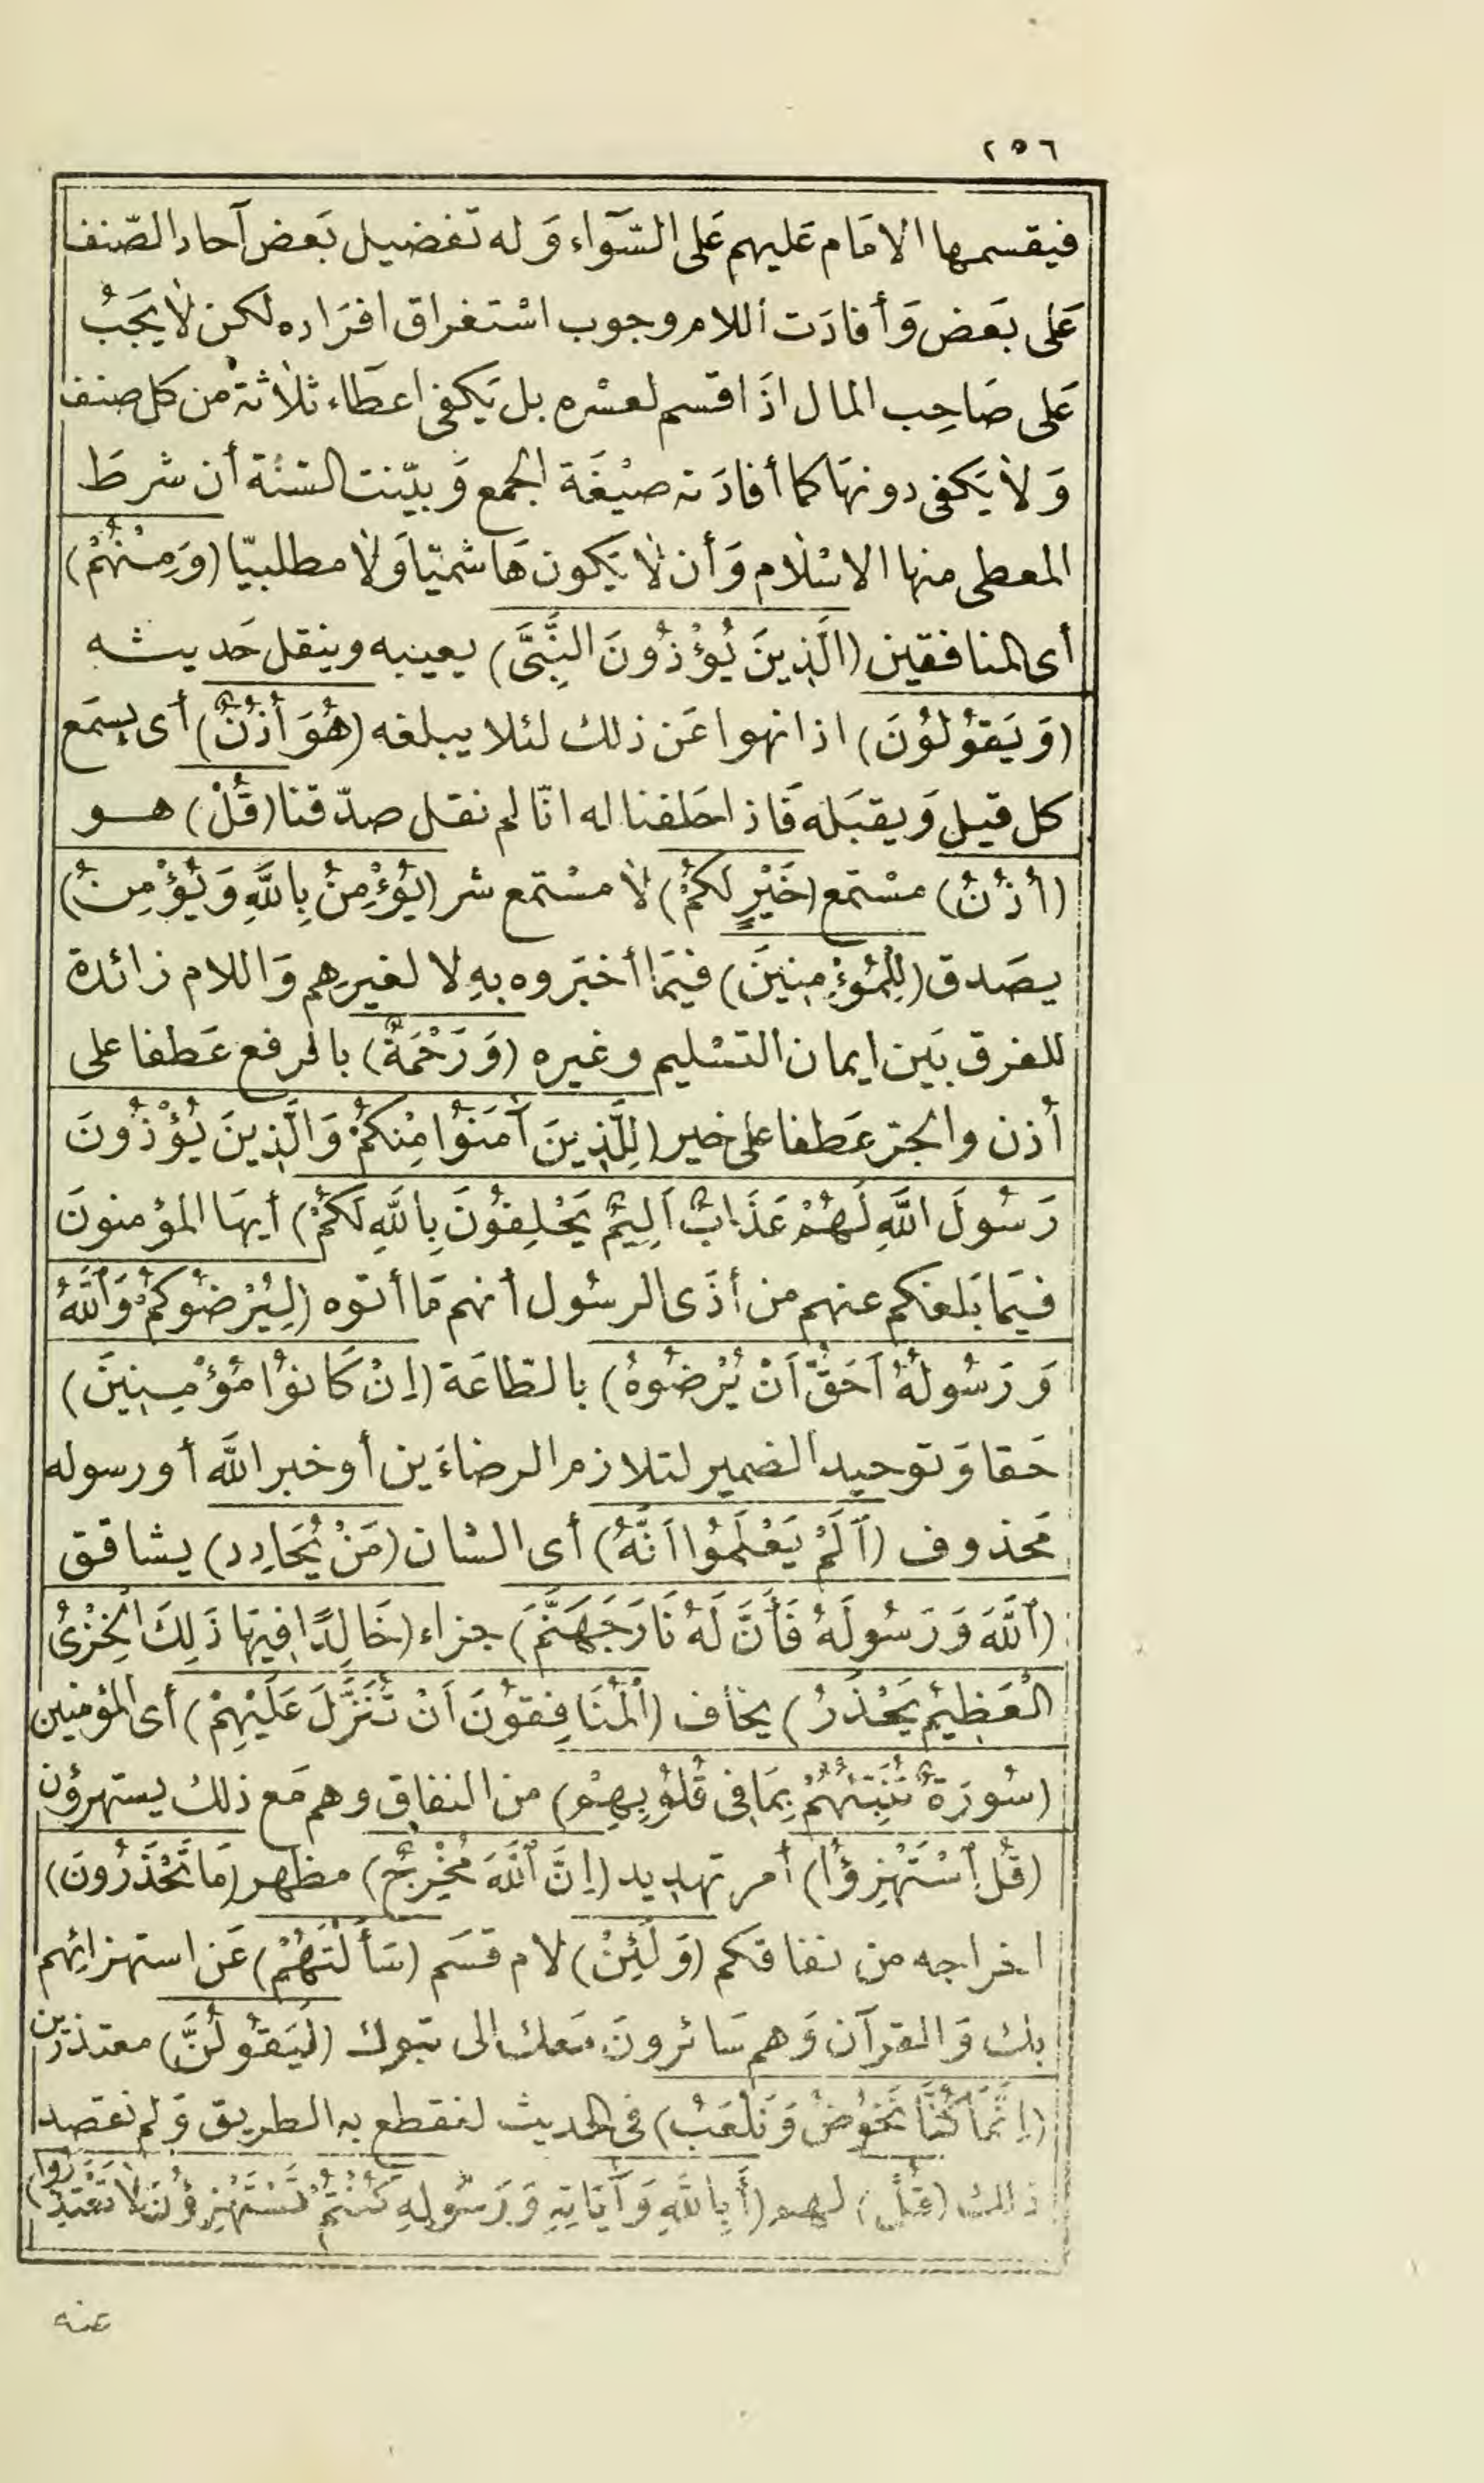 ٢٥٦
فيقسمها الامَام عَليهم عَلى السَّوَآء وَله تَفضيل بَعض آحاد الصّنف
عَلى بَعض وَأفادَت اللام وجوب اسْتغراق افرَاده لكن لَا يَجَبُ
عَلى صَاحِب المال اذَا قسم لعسْره بل يَكفى اعطَاء ثلَاثة من كل صنف
وَلَا يَكفى دونهَا كما أفادَته صيْغَة الجمع وَبيّنت السّنُة أن شرطَ
المعطى منها الاسْلَام وَأن لَا يَكون هَاشميّا وَلَا مطلبيّا (وَمِنْهُمْ)
أى المنافقين (الَّذِينَ يُؤْذُونَ النَّبِىَّ) يعيبه وينقل حَديثه
(وَيَقوُلوُنَ) اذا نهوا عَن ذلك لئلا يبلغه (هُوَ أُذُنٌ) أى يسمَع
كل قيل وَيقبَله فَاذا حَلفنا له انّا لم نقل صدّقنا (قُلْ) هو
(أُذُنُ) مسْتمع (خَيْرٍ لَكُمْ) لَا مسْتمع شر (يُؤْمِنُ بِاللَّهِ وَيُؤْمِنُ)
يصَدق (لِلْمُؤْمِنِينَ) فيمَا أخبَروه بهِ لا لغيرهم وَاللام زائدة
للفرق بَين ايمان التسْليم وغيره (وَرَحْمَةٌ) بالرفع عَطفا على
أذن والجرّ عَطفا على خير (لِلَّذِينَ آمَنوُا مِنْكُمْ وَالَّذِينَ يُؤْذُونَ
رَسُولَ اللَّهِ لَهُمْ عَذَابٌ اَلِيمٌ يَحْلِفوُنَ بِاللَّهِ لَكُمْ) أيهَا المؤمنونَ
فيمَا بَلغكم عنهم من أذَى الرسُول أنهم مَا أتوه (لِيُرْضوُكُمْ وَاَللَّهُ
وَرَسُولُهُ اَحَقُّ اَنْ يُرْضوُهُ) بالطّاعَة (اِنْ كَانوُا مُؤْمِنِينَ)
حَقا وَتوحيد الضمير لتلازم الرضاءَين أو خبر اللَّه أو رسوله
مَحذوف (اَلَمْ يَعْلَمُوا اَنَّهُ) أى الشان (مَنْ يُحَادِدِ) يشاقق
(اَللَّهَ وَرَسُولَهُ فَأَنَّ لَهُ نَارَ جَهَنَّمَ) جزاء (خَالِدًا فِيهَا ذَلِكَ الْخِزْىُ
الْعَظِيمُ يَحْذَرُ) يخاف (اَلْمُنَافِقوُنَ اَنْ تُنَزَّلَ عَلَيْهِمْ) أى المؤمنين
(سُورَةٌ تُنَبِّئُهُمْ بِمَا فِى قُلوُبِهِمْ) من النفاق وهم مَع ذلك يستهزؤن
(قُلِ اسْتَهْزِؤُا) أمر تهديد (اِنَّ اَللَّهَ مُخْرِجٌ) مظهر (مَا تَحْذَرُونَ)
اخراجه من نفاقكم (وَلَئِنْ) لام قسَم (سَأَلْتَهُمْ) عَن استهزائهم
بك وَالقرآن وَهم سَائرونَ مَعك الى تبوك (لَيَقوُلُنَّ) معتذرين
(اِنَّمَا كُنَّا نَخوُضُ وَنَلْعَبُ) فى الحديث لنقطع به الطريق وَلم نقصد
ذلك (قُلْ) لهم (أَبِاللَّهِ وَآيَاتِهِ وَرَسُولِهِ كُنْتُمْ تَسْتَهْزِؤُنَ لَا تَعْتَذِرُوا)
عنه